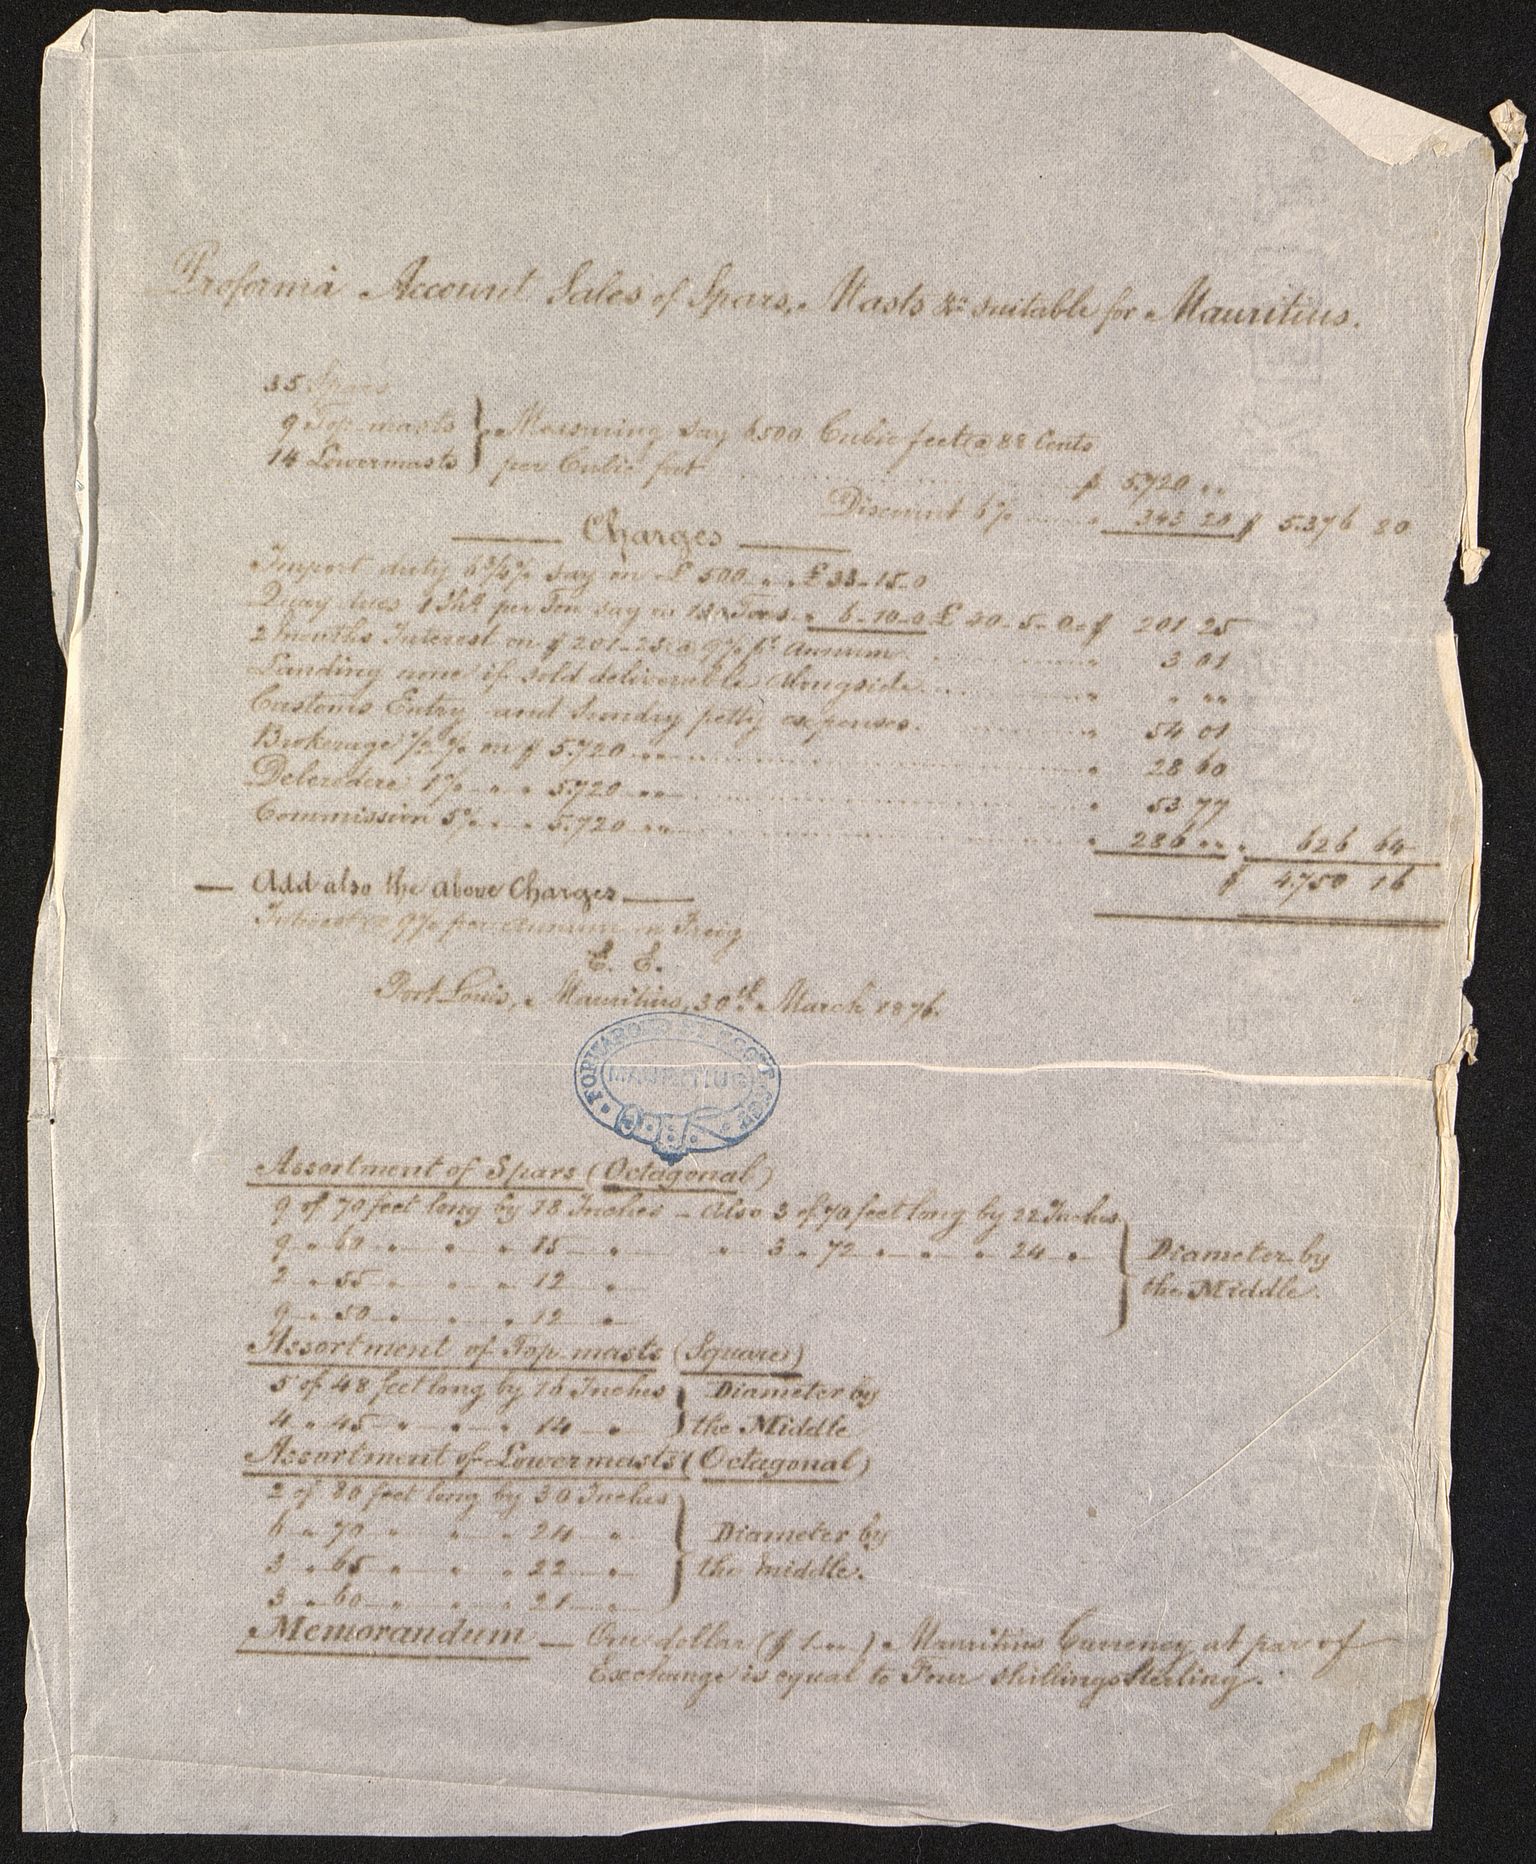 Proforma Account Sales of Spars, Masts &c suitable for Mauritius.
35 Spars
9 Top-masts } Measuring say 6500 Cubic feet @ 88 Cents
14 Lowermasts } per Cubic foot $ 5.720 " "
Discount 6% " 343 20 $ 5.376 80
Charges
Import duty 6¾% say on £ 500 " " £ 33-15-0
Quay dues 1 Shg per Ton say on 130 Tons " 6-10-0 £ 40-5-0 = $ 201 25
2 months Interest on $ 201-25 @ 9% pr Annum " 3 01
Landing none if sold deliverable alongside " " " "
Customs Entry and Sundry petty expenses " 54 01
Brokerage ½% on $ 5.720 " " " 28 60
Delcredere 1% " " 5.720 " " " 53 77
Commission 5% " " 5.720 " " " 286 " " " 626 64
$ 4.750 16
— Add also the above Charges —
Interest @ 9% per Annum on Freig
E. E.
Port Louis, Mauritius, 30th March 1876.
MAURITIUS
Assortment of Spars (Octagonal)
9 of 70 feet long by 18 Inches - Also 3 of 70 feet long by 22 Inches
9 " 60 " " " 15 " " 3 " 72 " " " 24 " } Diameter by
2 " 55 " " " 12 " the Middle.
9 " 50 " " " 12 "
Assortment of Top-masts (Square)
5 of 48 feet long by 16 Inches } Diameter by
4 " 45 " " " 14 " } the Middle
Assortment of Lowermasts (Octagonal)
2 of 80 feet long by 30 Inches
6 " 70 " " " 24 " } Diameter by
3 " 65 " " " 22 " } the middle.
3 " 60 " " " 21 "
Memorandum — One dollar ($ 1 " ") Mauritius Currency at par of
Exchange is equal to Four shillings Sterling.